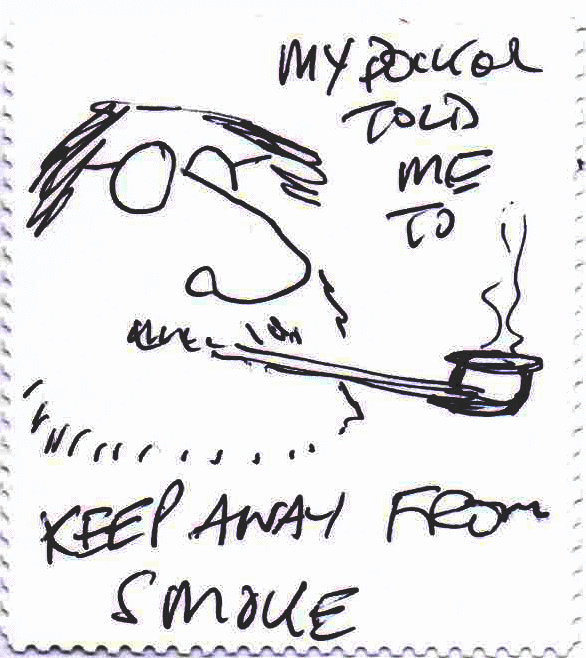 MY DOCTOR
TOLD
ME
TO
KEEP AWAY FROM
SMOKE